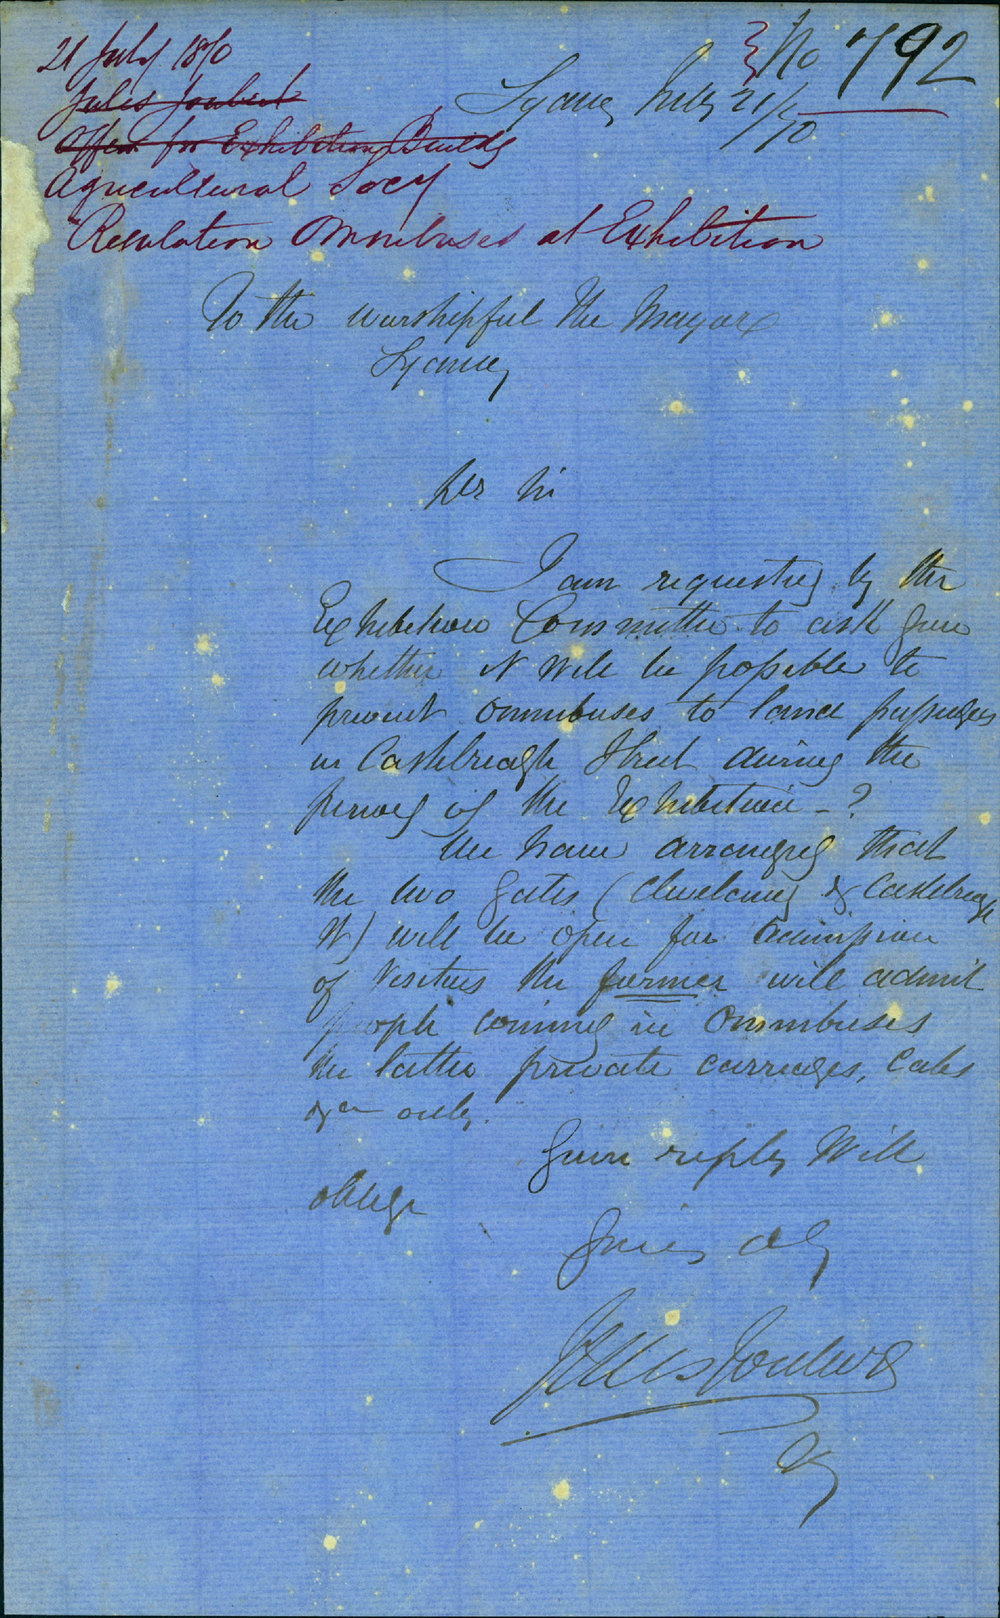 21 July 1870
Jules Joubert
Offers for Exhibition Buildg
Agricultural Socy
"Regulation Omnibuses at Exhibition
No 792
Sydney July 21/70
To the Worshipful the Mayor
Sydney
Dr Sir
I am requested by the
Exhibition Committee to ask you
whether it will be possible to
prevent omnibuses to land passengers
in Castlereagh Street during the
period of the Exhibition – ?
We have arranged that
the two gates (Cleveland & Castlereagh
St) will be open for admission
of Visitors the former will admit
people coming in Omnibuses
the latter private carriages, Cabs
&ca only.
Your reply Will
oblige
Yours
Jules Joubert